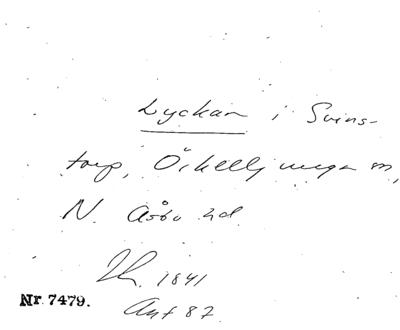 Lyckan i Svins-
torp, Örkelljunga sn,
N. Åsbo hd
1841
Nr. 7479.
Ant 87